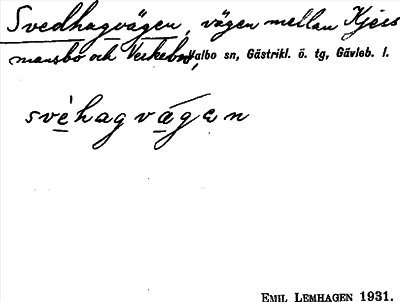 Svedhagvägen, vägen mellan Kjers
mansbo och Verkebo, Valbo sn, Gästrikl. ö. tg, Gävleb. l.
svèhagvägen
EMIL LEMHAGEN 1931.